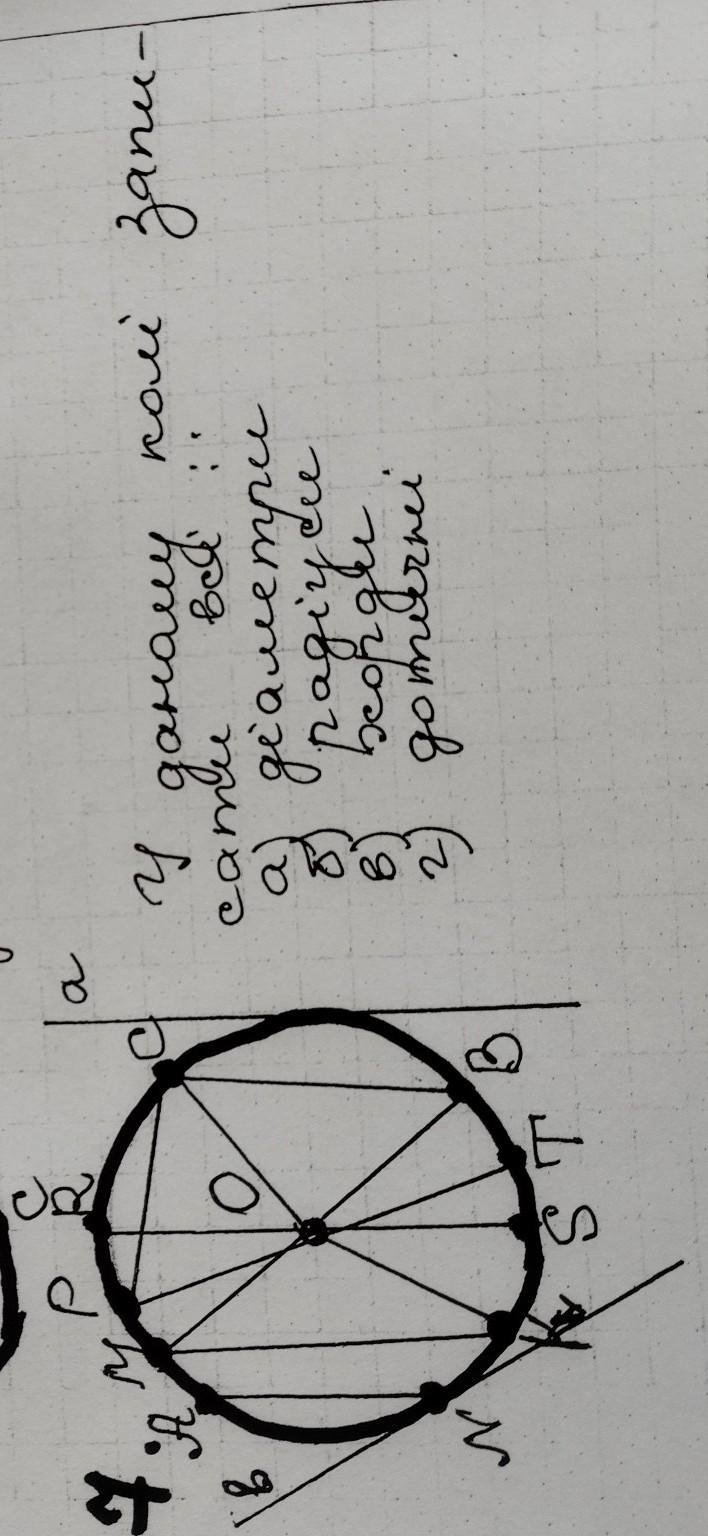 7.
У даному колі запи-
сати всі:
а) діаметри
б) радіуси
в) хорди
г) дотичні
C
A
M
P
R
C
a
O
B
T
S
N
в